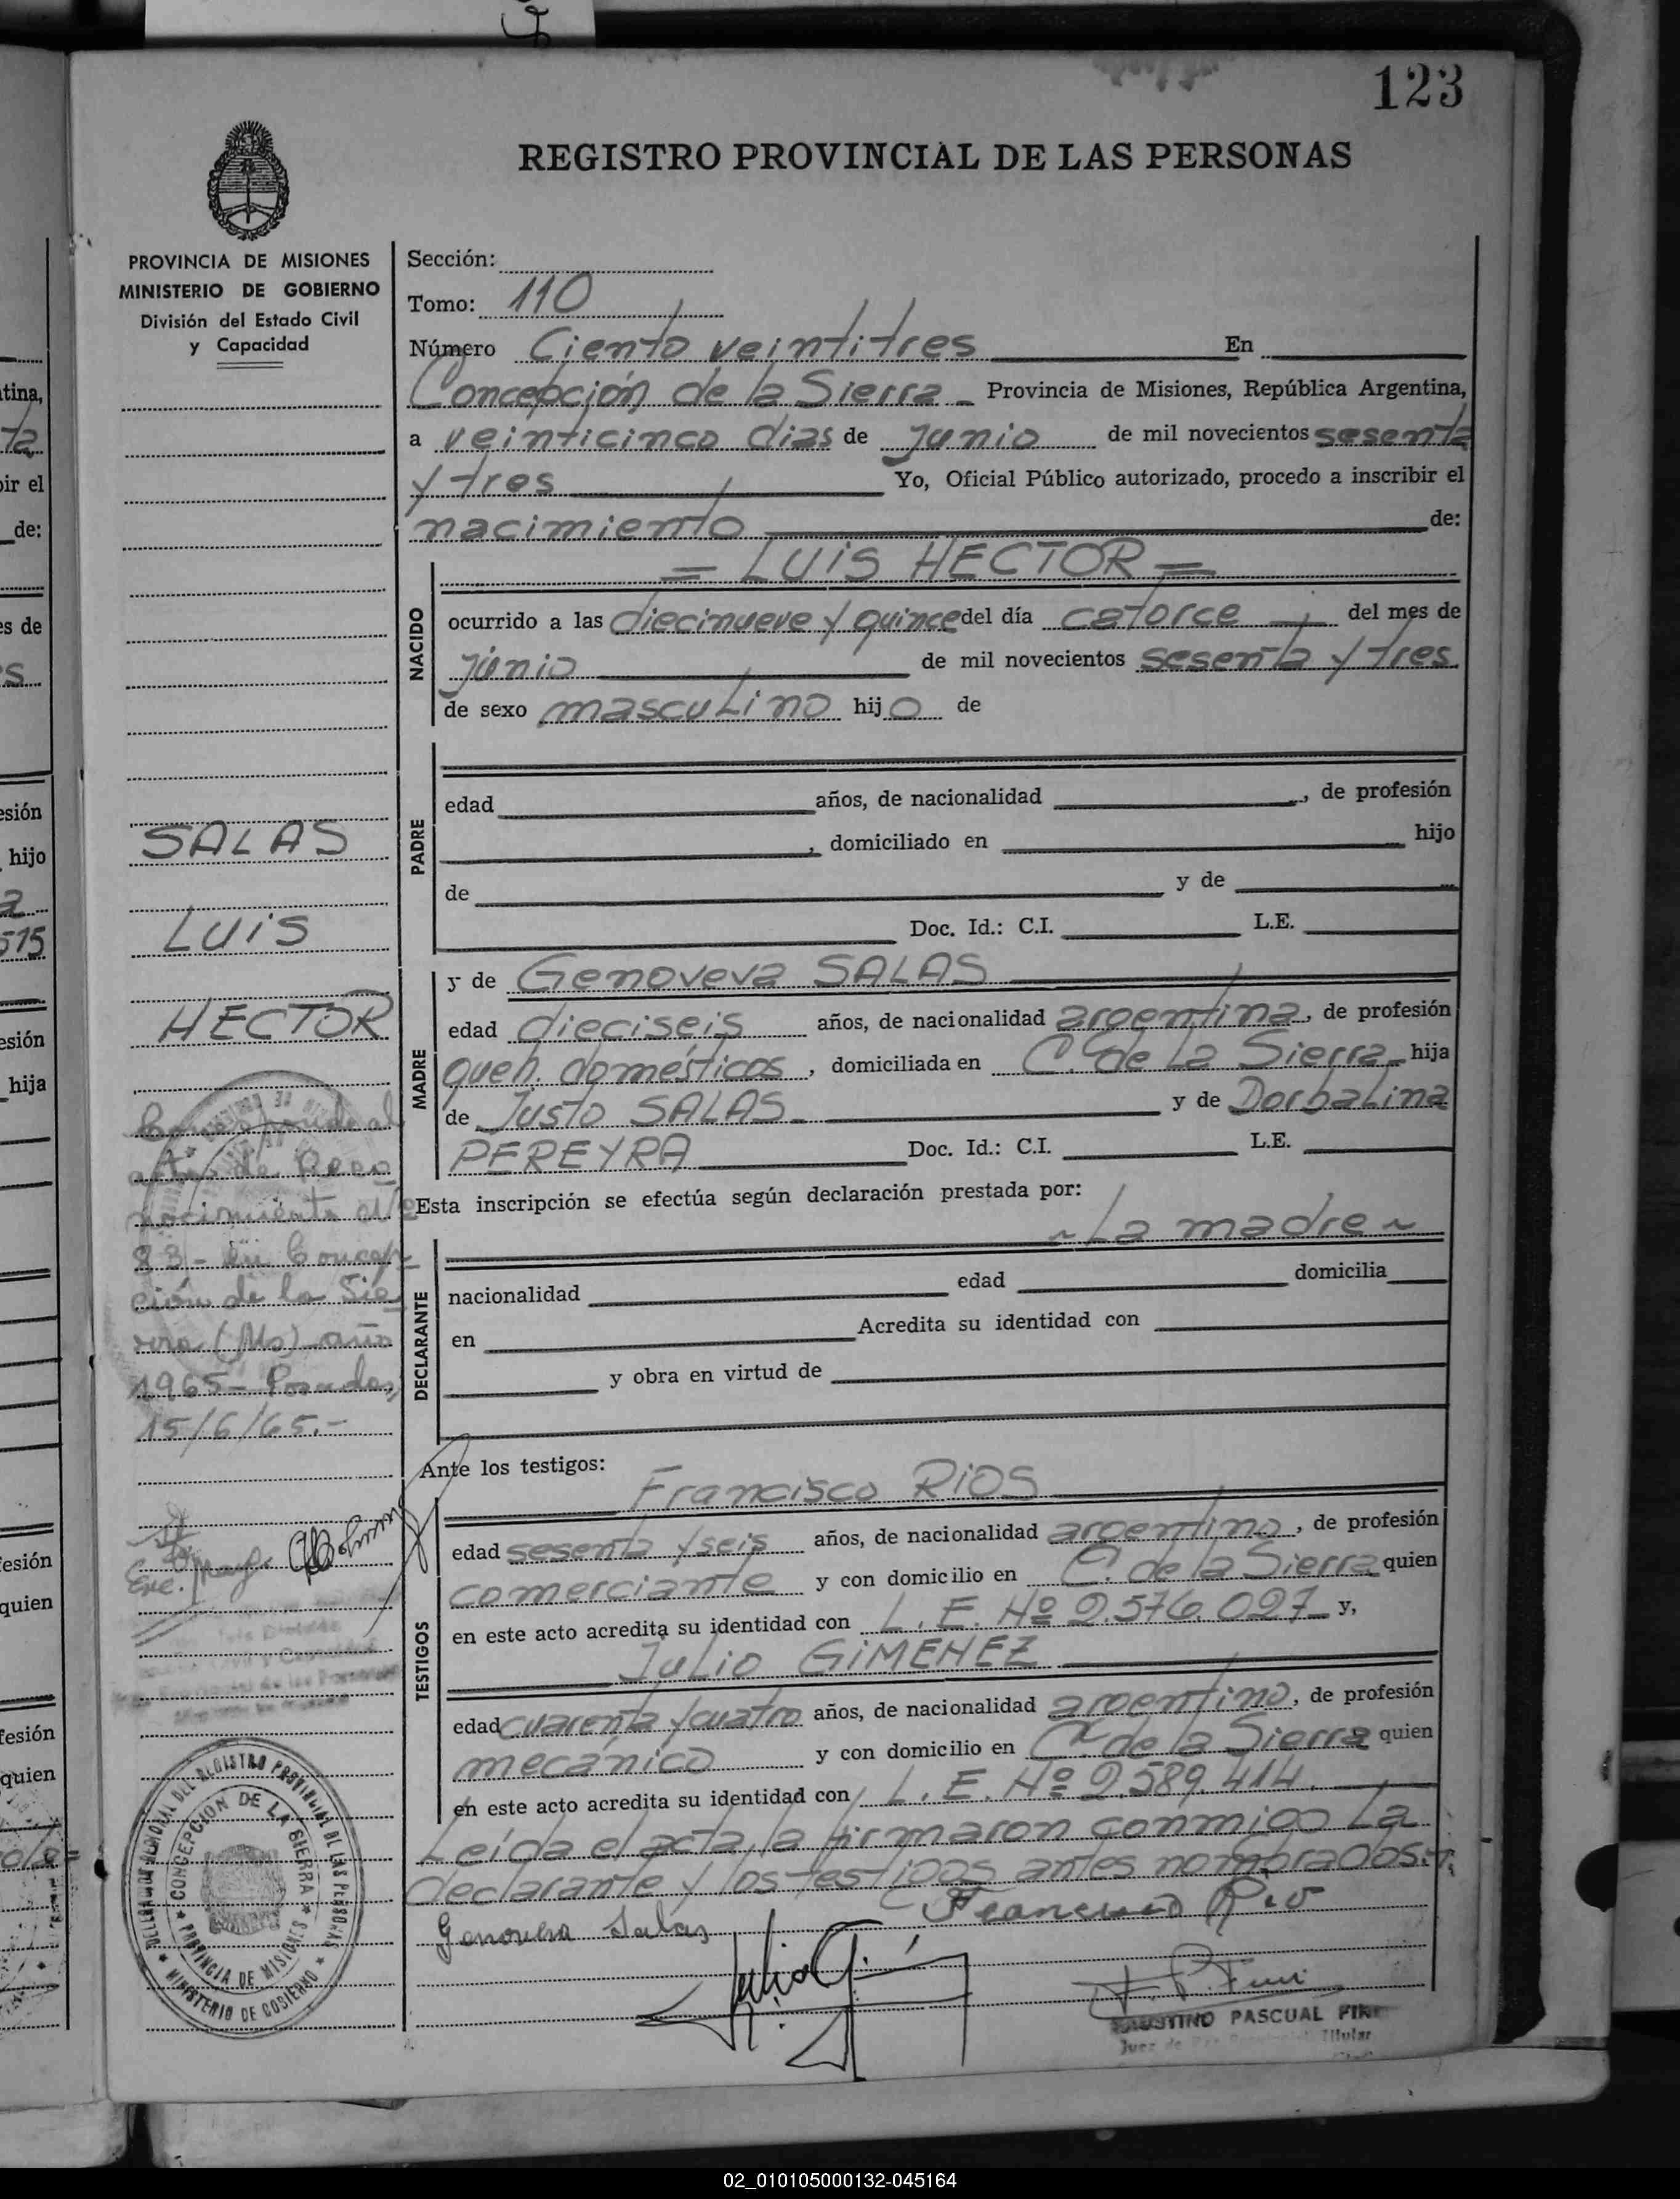 123
REGISTRO PROVINCIAL DE LAS PERSONAS
PROVINCIA DE MISIONES
MINISTERIO DE GOBIERNO
División del Estado Civil
y Capacidad
Sección:
Tomo: 110
Número Ciento veintitres En
Concepción de la Sierra Provincia de Misiones, República Argentina,
a veinticinco dias de junio de mil novecientos sesenta
y tres Yo, Oficial Público autorizado, procedo a inscribir el
nacimiento de:
= LUIS HECTOR =
NACIDO
ocurrido a las diecinueve y quince del día catorce del mes de
junio de mil novecientos sesenta y tres
de sexo masculino hijo de
PADRE
edad años, de nacionalidad , de profesión
, domiciliado en hijo
de y de
Doc. Id.: C.I. L.E.
MADRE
y de Genoveva SALAS
edad dieciseis años, de nacionalidad argentina, de profesión
queh. domésticos, domiciliada en C. de la Sierra hija
de Justo SALAS y de Dorbalina
PEREYRA Doc. Id.: C.I. L.E.
Esta inscripción se efectúa según declaración prestada por:
~ La madre ~
DECLARANTE
nacionalidad edad domicilia
en Acredita su identidad con
y obra en virtud de
Ante los testigos:
TESTIGOS
Francisco RIOS
edad sesenta y seis años, de nacionalidad argentino, de profesión
comerciante y con domicilio en C. de la Sierra quien
en este acto acredita su identidad con L. E. Nº 2.576.027 y,
Julio GIMENEZ
edad cuarenta y cuatro años, de nacionalidad argentino, de profesión
mecánico y con domicilio en C. de la Sierra quien
en este acto acredita su identidad con L. E. Nº 2.589.414.
Leída el acta, la firmaron conmigo La
declarante y los testigos antes nombrados.
Genoveva Salas
Francisco Rio
Julio G.
F. P. Fini
FAUSTINO PASCUAL
Juez de Titular
SALAS
LUIS
HECTOR
Corresponde al
acta de Reco
nocimiento Nº
83 - en Concep
ción de la Sie
rra (Ms) año
1965 - Posadas,
15/6/65.-
REGISTRO PROVINCIAL DE LAS PERSONAS
MINISTERIO DE GOBIERNO
CONCEPCION DE LA SIERRA
PROVINCIA DE MISIONES
tina,
ta
bir el
de:
es de
s
esión
hijo
a
515
esión
hija
fesión
quien
fesión
quien
02_010105000132-045164